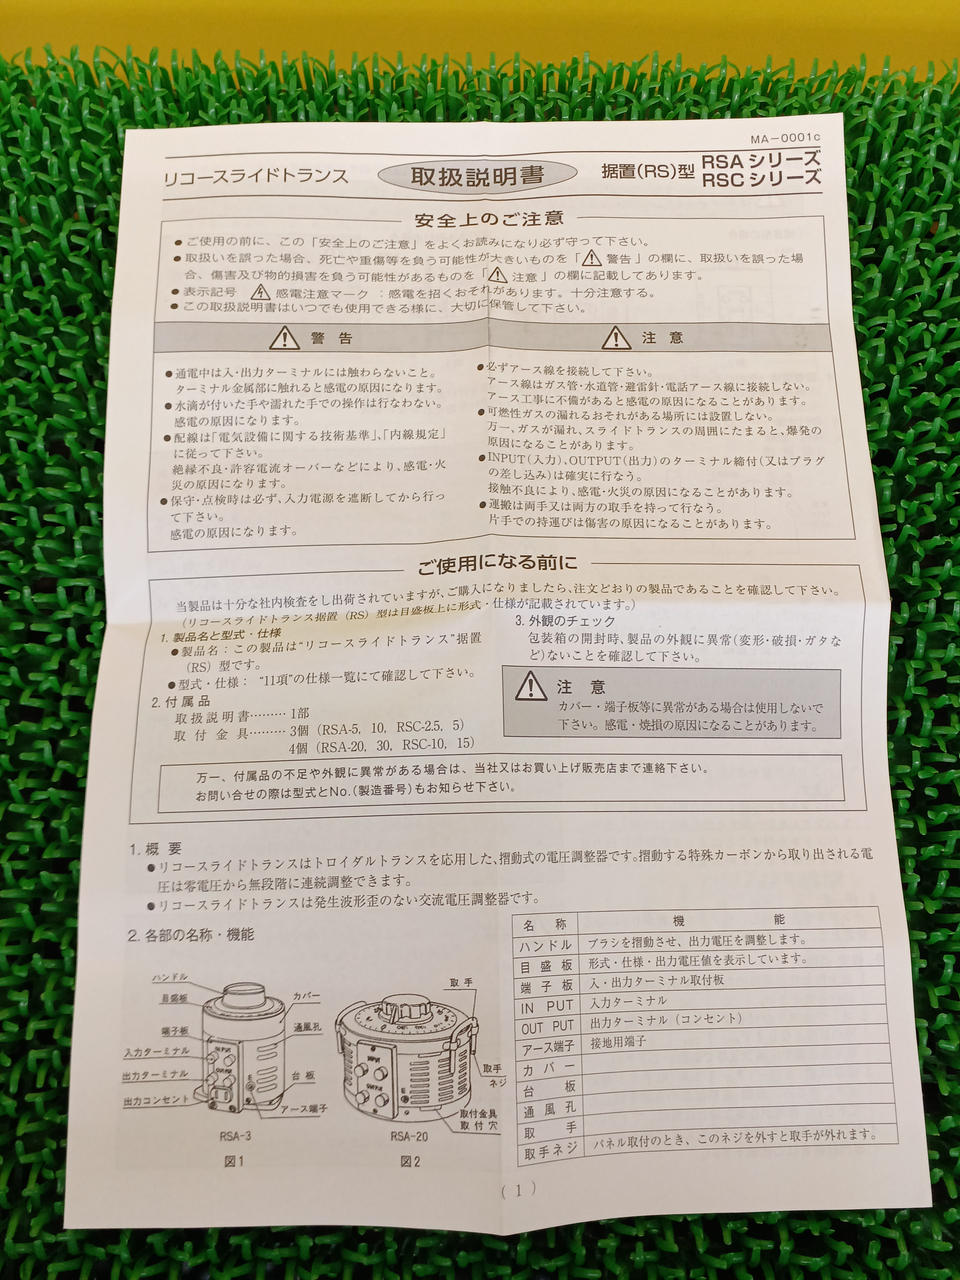 MA-0001c
リコースライドトランス 取扱説明書 据置(RS)型 RSAシリーズ
RSCシリーズ
安全上のご注意
●ご使用の前に、この「安全上のご注意」をよくお読みになり必ず守って下さい。
●取扱いを誤った場合、死亡や重傷等を負う可能性が大きいものを「⚠警告」の欄に、取扱いを誤った場
合、傷害及び物的損害を負う可能性があるものを「⚠注意」の欄に記載してあります。
●表示記号 感電注意マーク：感電を招くおそれがあります。十分注意する。
●この取扱説明書はいつでも使用できる様に、大切に保管して下さい。
⚠ 警告
●通電中は入・出力ターミナルには触わらないこと。
ターミナル金属部に触れると感電の原因になります。
●水滴が付いた手や濡れた手での操作は行なわない。
感電の原因になります。
●配線は「電気設備に関する技術基準」、「内線規定」
に従って下さい。
絶縁不良・許容電流オーバーなどにより、感電・火
災の原因になります。
●保守・点検時は必ず、入力電源を遮断してから行っ
て下さい。
感電の原因になります。
⚠ 注意
●必ずアース線を接続して下さい。
アース線はガス管・水道管・避雷針・電話アース線に接続しない。
アース工事に不備があると感電の原因になることがあります。
●可燃性ガスの漏れるおそれがある場所には設置しない。
万一、ガスが漏れ、スライドトランスの周囲にたまると、爆発の
原因になることがあります。
●INPUT(入力)、OUTPUT(出力)のターミナル締付(又はプラグ
の差し込み)は確実に行なう。
接触不良により、感電・火災の原因になることがあります。
●運搬は両手又は両方の取手を持って行なう。
片手での持運びは傷害の原因になることがあります。
ご使用になる前に
当製品は十分な社内検査をし出荷されていますが、ご購入になりましたら、注文どおりの製品であることを確認して下さい。
(リコースライドトランス据置（RS）型は目盛板上に形式・仕様が記載されています。)
1. 製品名と型式・仕様
●製品名：この製品は"リコースライドトランス"据置
（RS）型です。
●型式・仕様："11項"の仕様一覧にて確認して下さい。
2. 付属品
取扱説明書………1部
取付金具………3個（RSA-5, 10, RSC-2.5, 5）
4個（RSA-20, 30, RSC-10, 15）
3. 外観のチェック
包装箱の開封時、製品の外観に異常(変形・破損・ガタな
ど)ないことを確認して下さい。
⚠ 注意
カバー・端子板等に異常がある場合は使用しないで
下さい。感電・焼損の原因になることがあります。
万一、付属品の不足や外観に異常がある場合は、当社又はお買い上げ販売店まで連絡下さい。
お問い合せの際は型式とNo.(製造番号)もお知らせ下さい。
1. 概要
●リコースライドトランスはトロイダルトランスを応用した、摺動式の電圧調整器です。摺動する特殊カーボンから取り出される電
圧は零電圧から無段階に連続調整できます。
●リコースライドトランスは発生波形歪のない交流電圧調整器です。
2. 各部の名称・機能
ハンドル
目盛板
端子板
入力ターミナル
出力ターミナル
出力コンセント
カバー
通風孔
台板
アース端子
INPUT
OUTPUT
E
RSA-3
図1
取手
取手
ネジ
取付金具
取付穴
INPUT
OUTPUT
E
RSA-20
図2
名称 機能
ハンドル ブラシを摺動させ、出力電圧を調整します。
目盛板 形式・仕様・出力電圧値を表示しています。
端子板 入・出力ターミナル取付板
IN PUT 入力ターミナル
OUT PUT 出力ターミナル（コンセント）
アース端子 接地用端子
カバー
台板
通風孔
取手
取手ネジ パネル取付のとき、このネジを外すと取手が外れます。
(1)